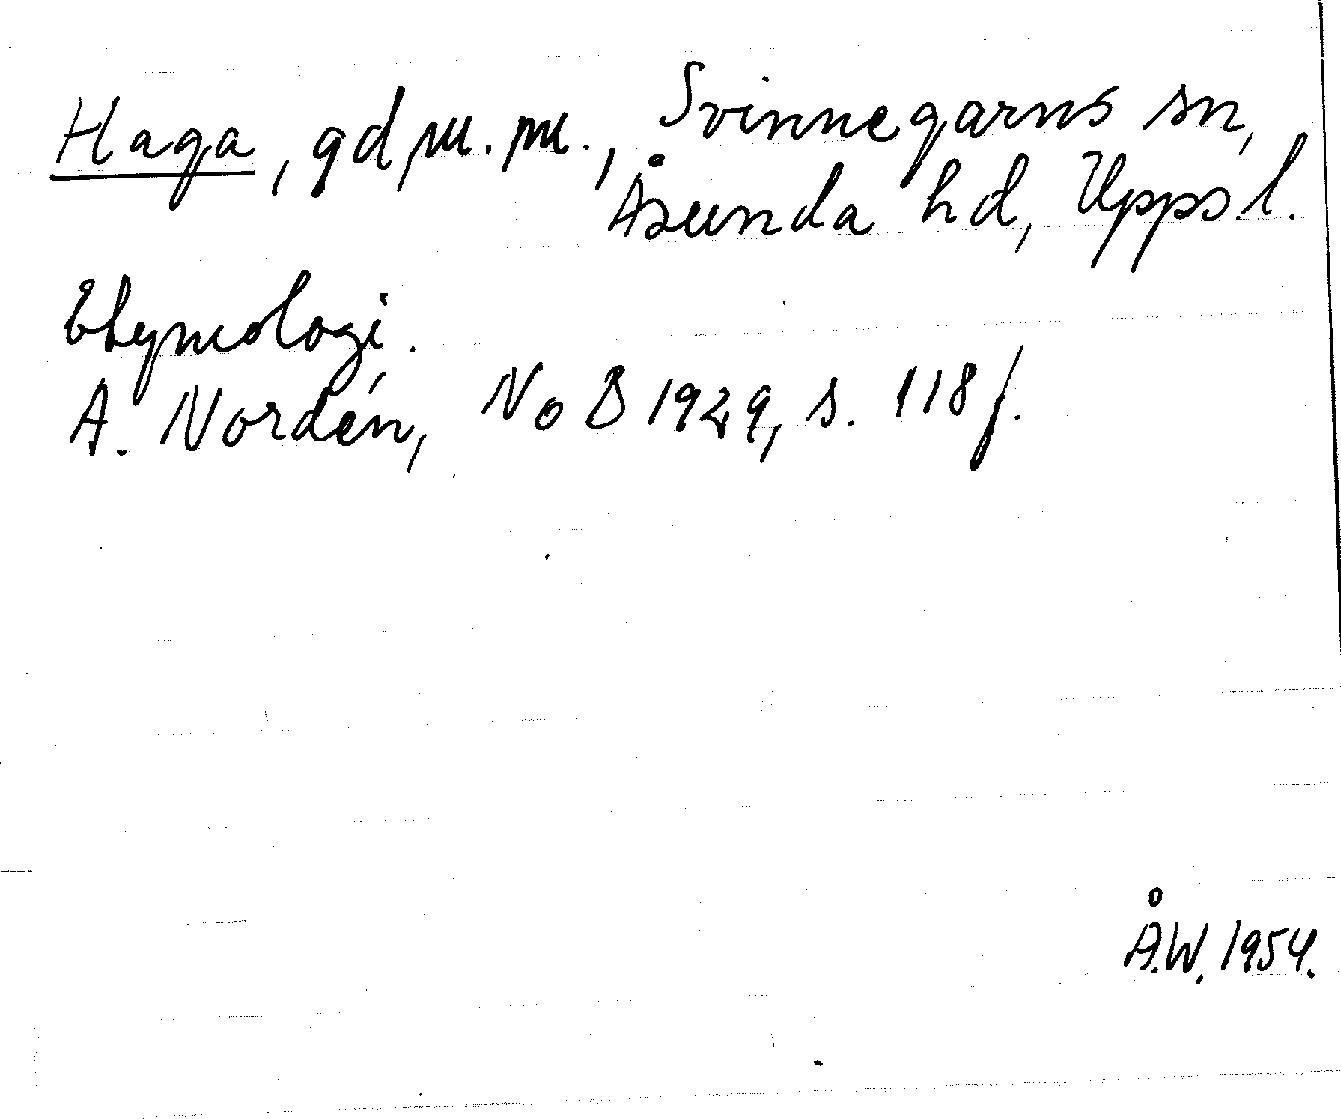 Haga, gd m. m., Svinnegarns sn,
Åsunda hd, Upps l.
Etymologi.
A. Nordén, NoB 1929, s. 118 f.
Å.W. 1954.